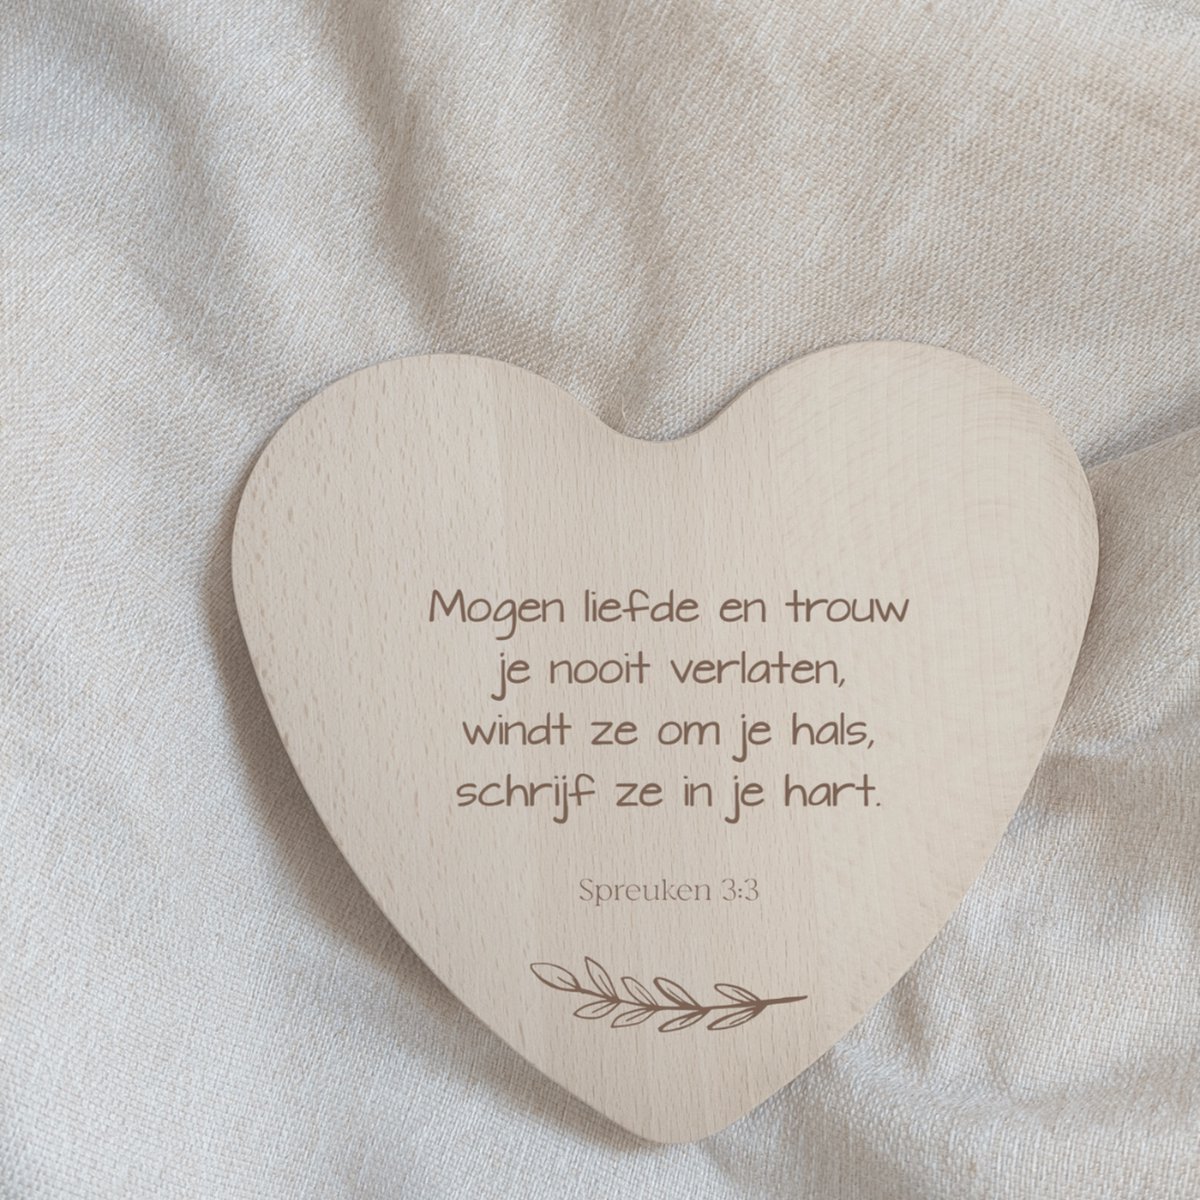 Mogen liefde en trouw
je nooit verlaten,
windt ze om je hals,
schrijf ze in je hart.
Spreuken 3:3